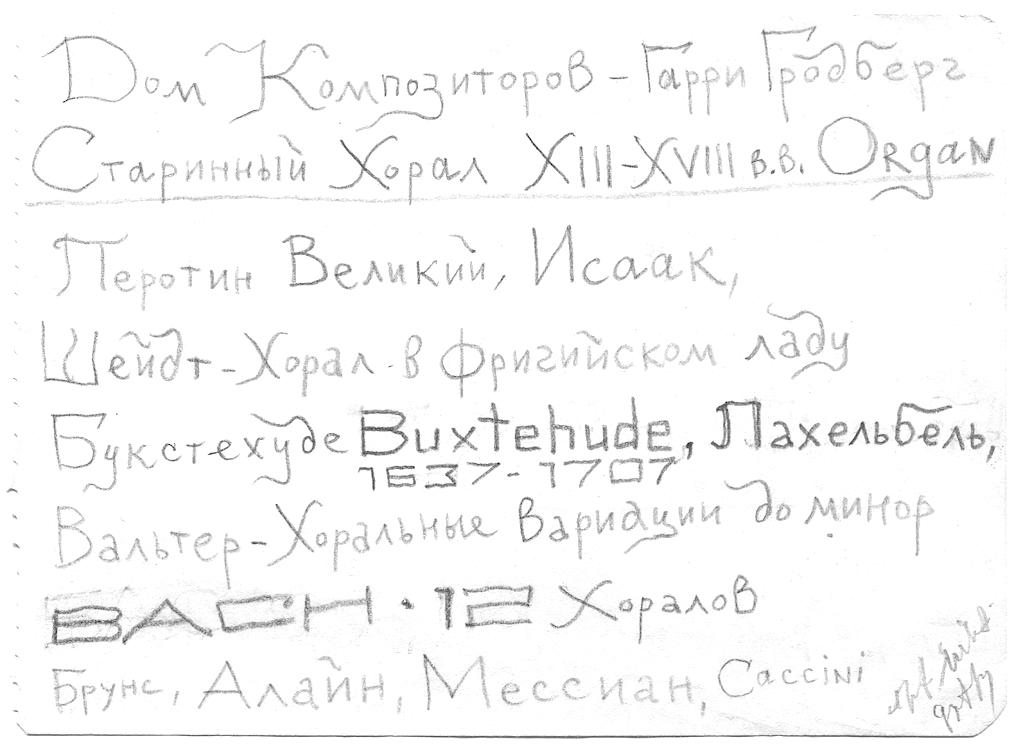 Дом Композиторов – Гарри Гродберг
Старинный Хорал XIII–XVIII в.в. Organ
Перотин Великий, Исаак,
Шейдт – Хорал в фригийском ладу
Букстехуде Buxtehude, Пахельбель,
1637-1707
Вальтер – Хоральные вариации до минор
BACH · 12 Хоралов
Брунс, Алайн, Мессиан, Caccini